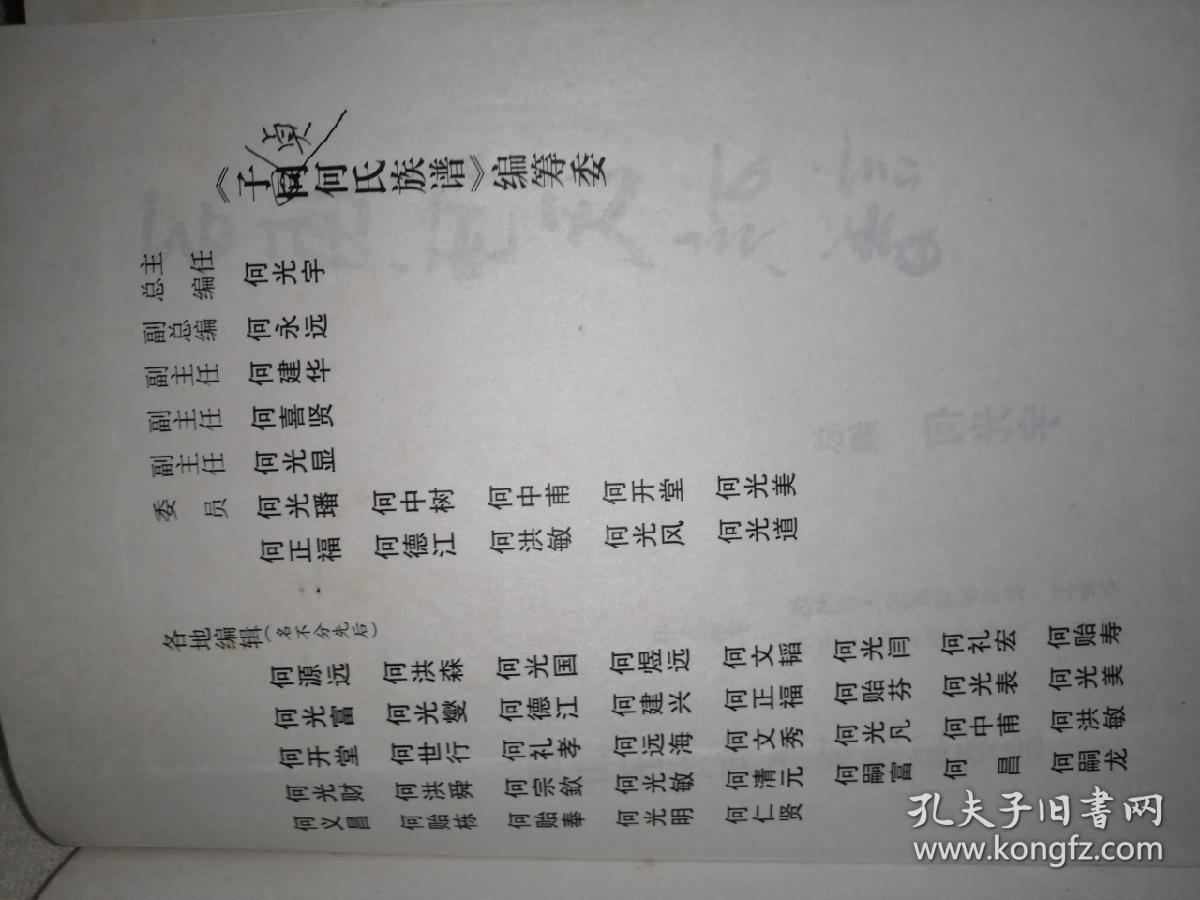 《子贞何氏族谱》编筹委
总编
主任 何光宇
副总编 何永远
副主任 何建华
副主任 何喜贤
副主任 何光显
委员 何光璠 何中树 何中甫 何开堂 何光美
何正福 何德江 何洪敏 何光风 何光道
各地编辑(名不分先后)
何源远 何洪森 何光国 何煜远 何文韬 何光闫 何礼宏 何贻寿
何光富 何光燮 何德江 何建兴 何正福 何贻芬 何光表 何光美
何开堂 何世行 何礼孝 何远海 何文秀 何光凡 何中甫 何洪敏
何光财 何洪舜 何宗欽 何光敏 何清元 何嗣富 何昌 何嗣龙
何义昌 何贻栋 何贻奉 何光明 何仁贤
孔夫子旧书网
www.kongfz.com